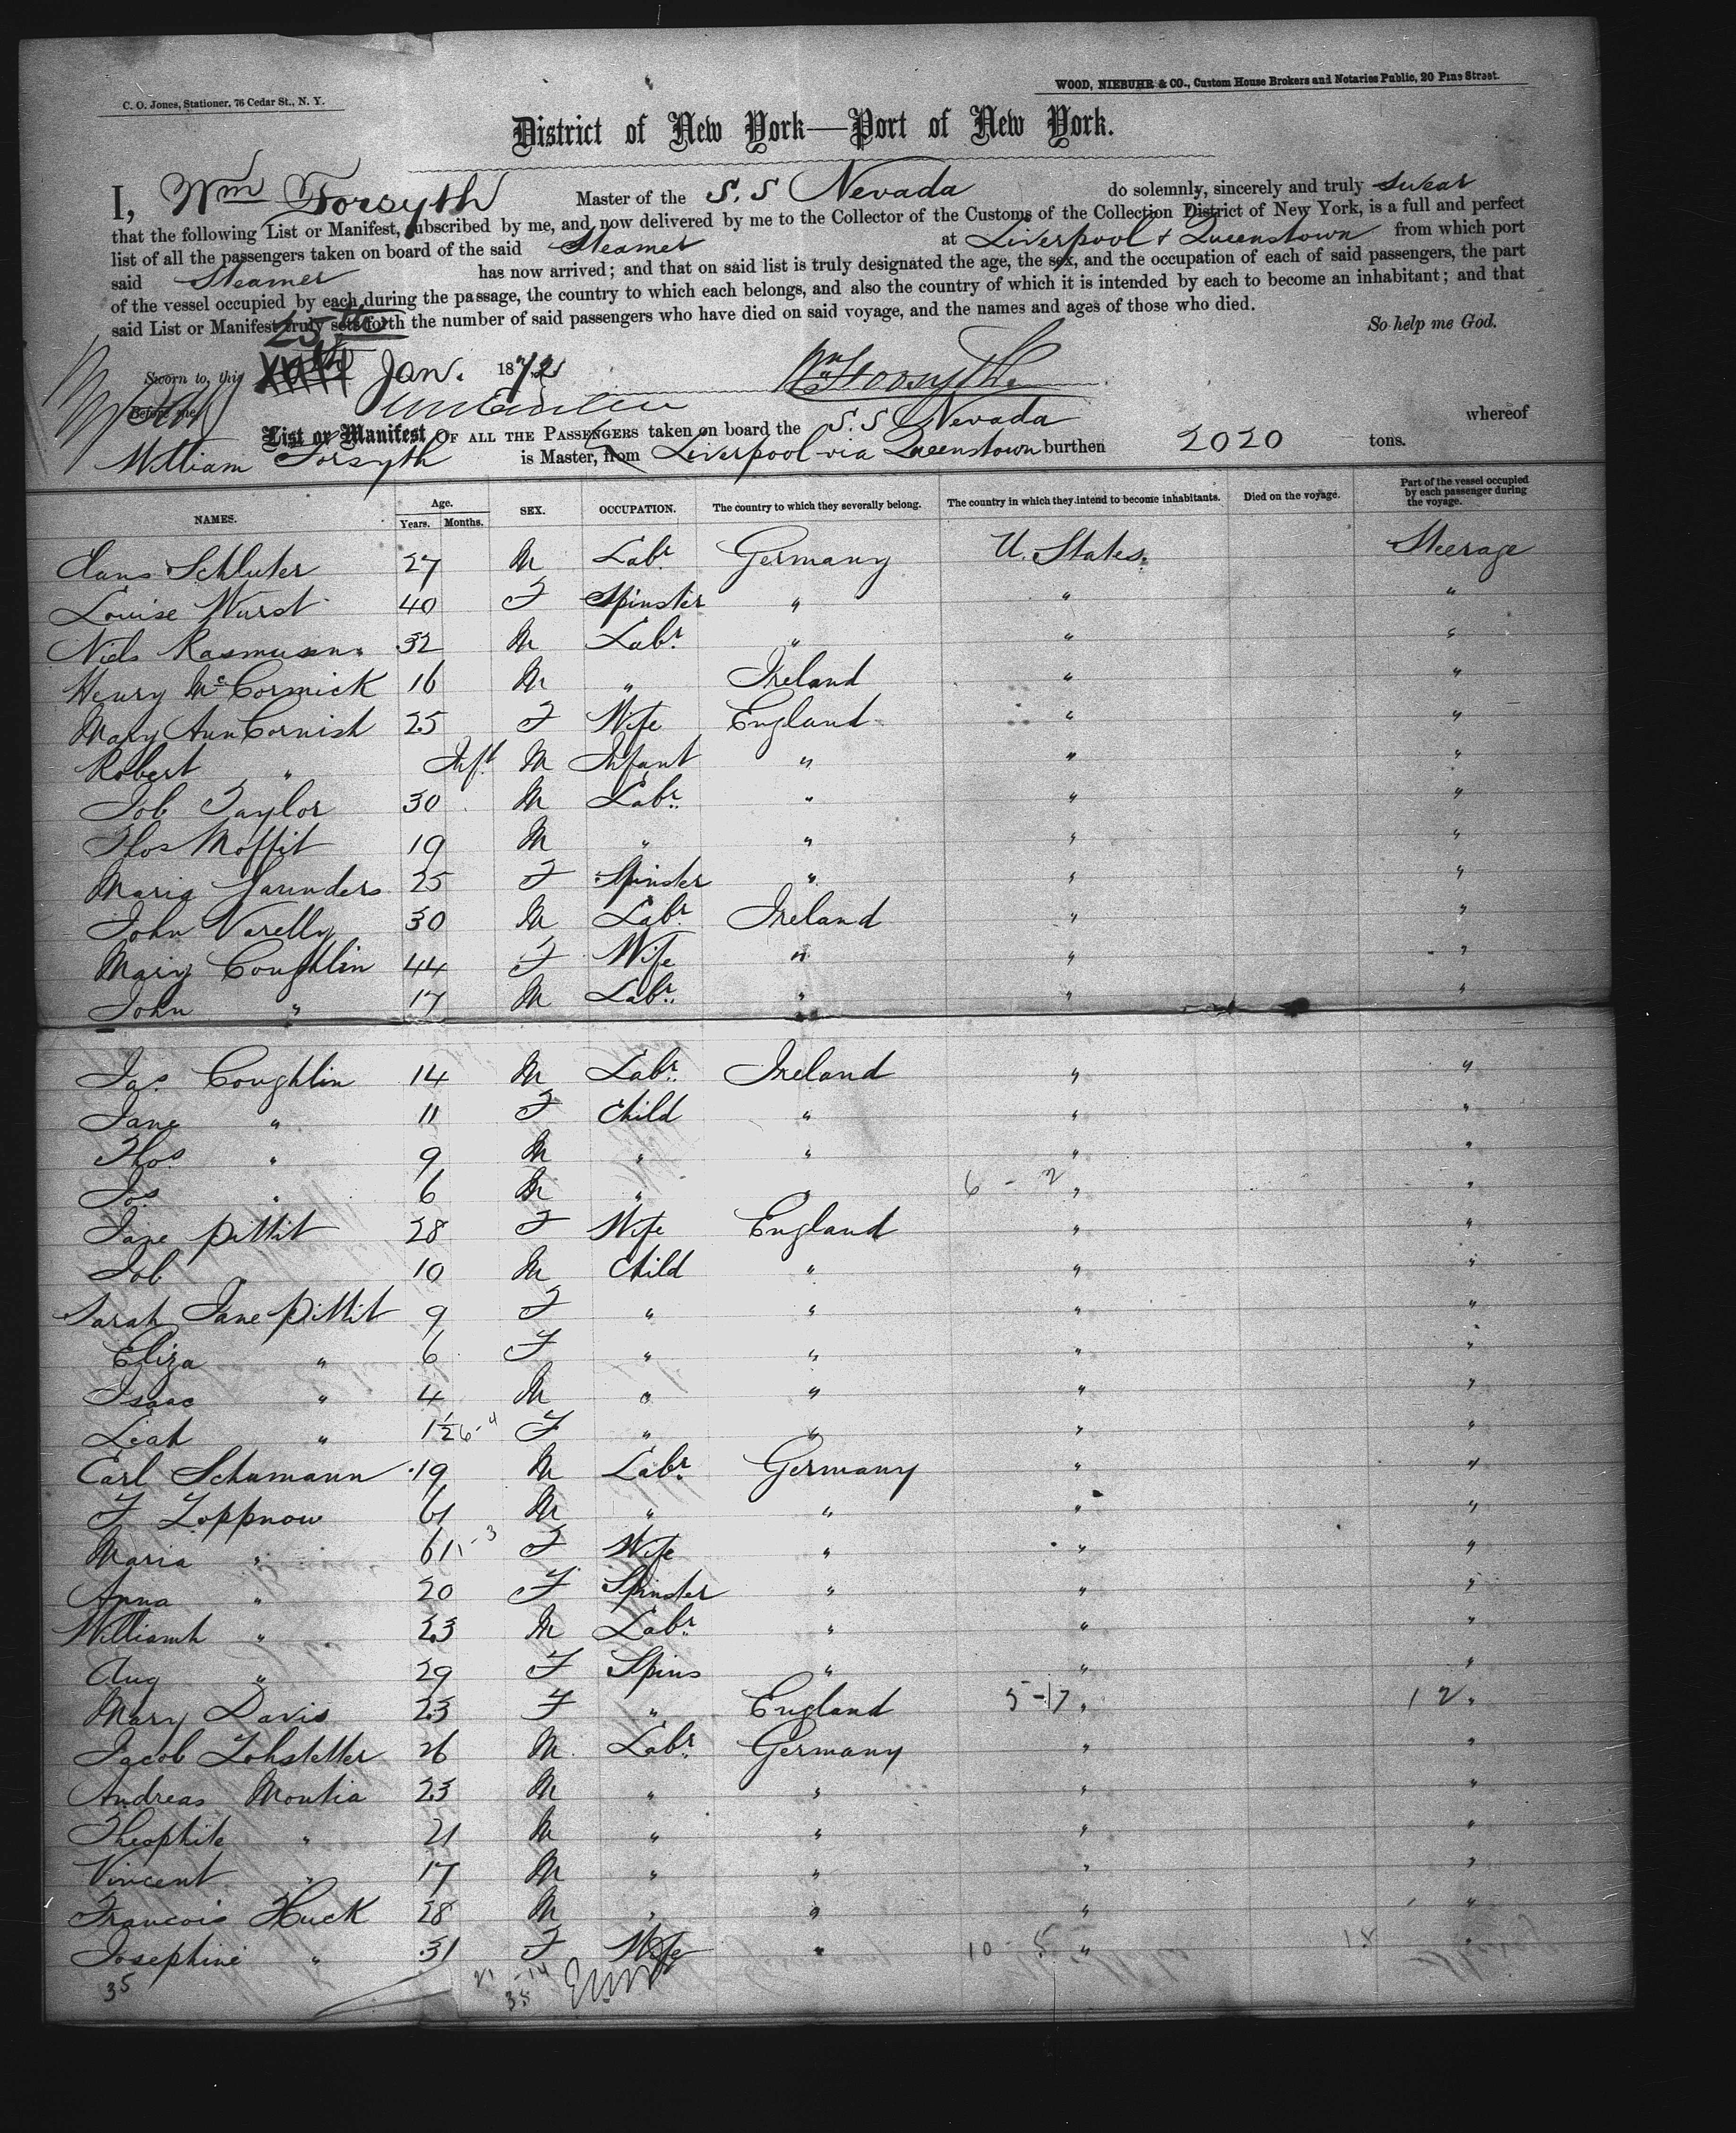 C. O. Jones, Stationer, 76 Cedar St., N. Y.
WOOD, NIEBUHR & CO., Custom House Brokers and Notaries Public, 20 Pine Street.
District of New York—Port of New York.
I, Wm Forsyth Master of the S. S Nevada do solemnly, sincerely and truly swear
that the following List or Manifest, subscribed by me, and now delivered by me to the Collector of the Customs of the Collection District of New York, is a full and perfect
list of all the passengers taken on board of the said Steamer at Liverpool & Queenstown from which port
said Steamer has now arrived; and that on said list is truly designated the age, the sex, and the occupation of each of said passengers, the part
of the vessel occupied by each during the passage, the country to which each belongs, and also the country of which it is intended by each to become an inhabitant; and that
said List or Manifest truly sets forth the number of said passengers who have died on said voyage, and the names and ages of those who died.
So help me God.
25th
Sworn to, this Jan. 1872 Wm Forsyth
Before me
List or Manifest OF ALL THE PASSENGERS taken on board the S. S Nevada whereof
William Forsyth is Master, from Liverpool via Queenstown burthen 2020 tons.
NAMES. Age. Years. Months. SEX. OCCUPATION. The country to which they severally belong. The country in which they intend to become inhabitants. Died on the voyage. Part of the vessel occupied by each passenger during the voyage.
Claus Schluter 27 M Labr. Germany U. States. Steerage
Louise Wurst 40 F Spinster " " "
Niels Rasmussen 32 M Labr. " " "
Henry McCormick 16 M " Ireland " "
Mary Ann Cornish 25 F Wife England " "
Robert " Inft M Infant " " "
Job Taylor 30 M Labr. " " "
Thos Moffit 19 M " " " "
Maria Saunders 25 F Spinster " " "
John Varelly 30 M Labr. Ireland " "
Mary Coughlin 44 F Wife " " "
John " 17 M Labr. " " "
Jas Coughlin 14 M Labr. Ireland " "
Jane " 11 F Child " " "
Thos " 9 M " " " "
Jos " 6 M " " 6 - 2 " "
Jane Pittit 28 F Wife England " "
Job 10 M Child " " "
Sarah Jane Pittit 9 F " " " "
Eliza " 6 F " " " "
Isaac " 4 M " " " "
Leah " 1½ 6-4 F " " " "
Carl Schumann 19 M Labr. Germany " "
F Zoppnow 61 M " " " "
Maria " 61 -3 F Wife " " "
Anna " 20 F Spinster " " "
Williamh " 23 M Labr. " " "
Aug " 29 F Spins " " "
Mary Davis 23 F " England 5-17 " 12 "
Jacob Zohstetter 26 M Labr. Germany " "
Andreas Montia 23 M " " " "
Theophile " 21 M " " " "
Vincent " 17 M " " " "
Francois Huck 28 M " " " "
Josephine " 31 F Wife " 10 - 5 " 18 "
35 21 -14
35